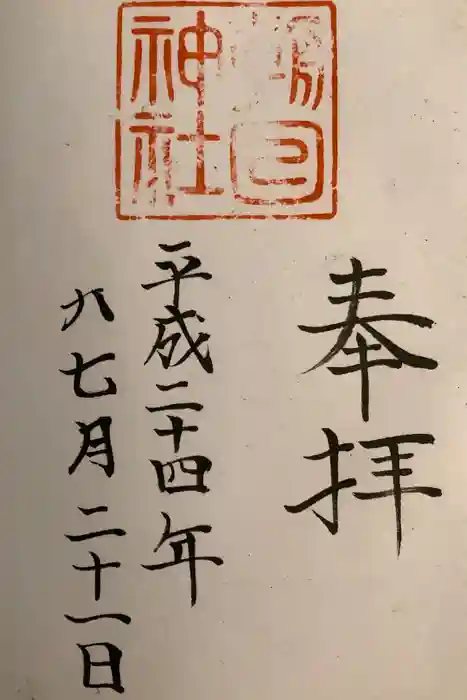 神社
奉拝
平成二十四年
七月二十一日